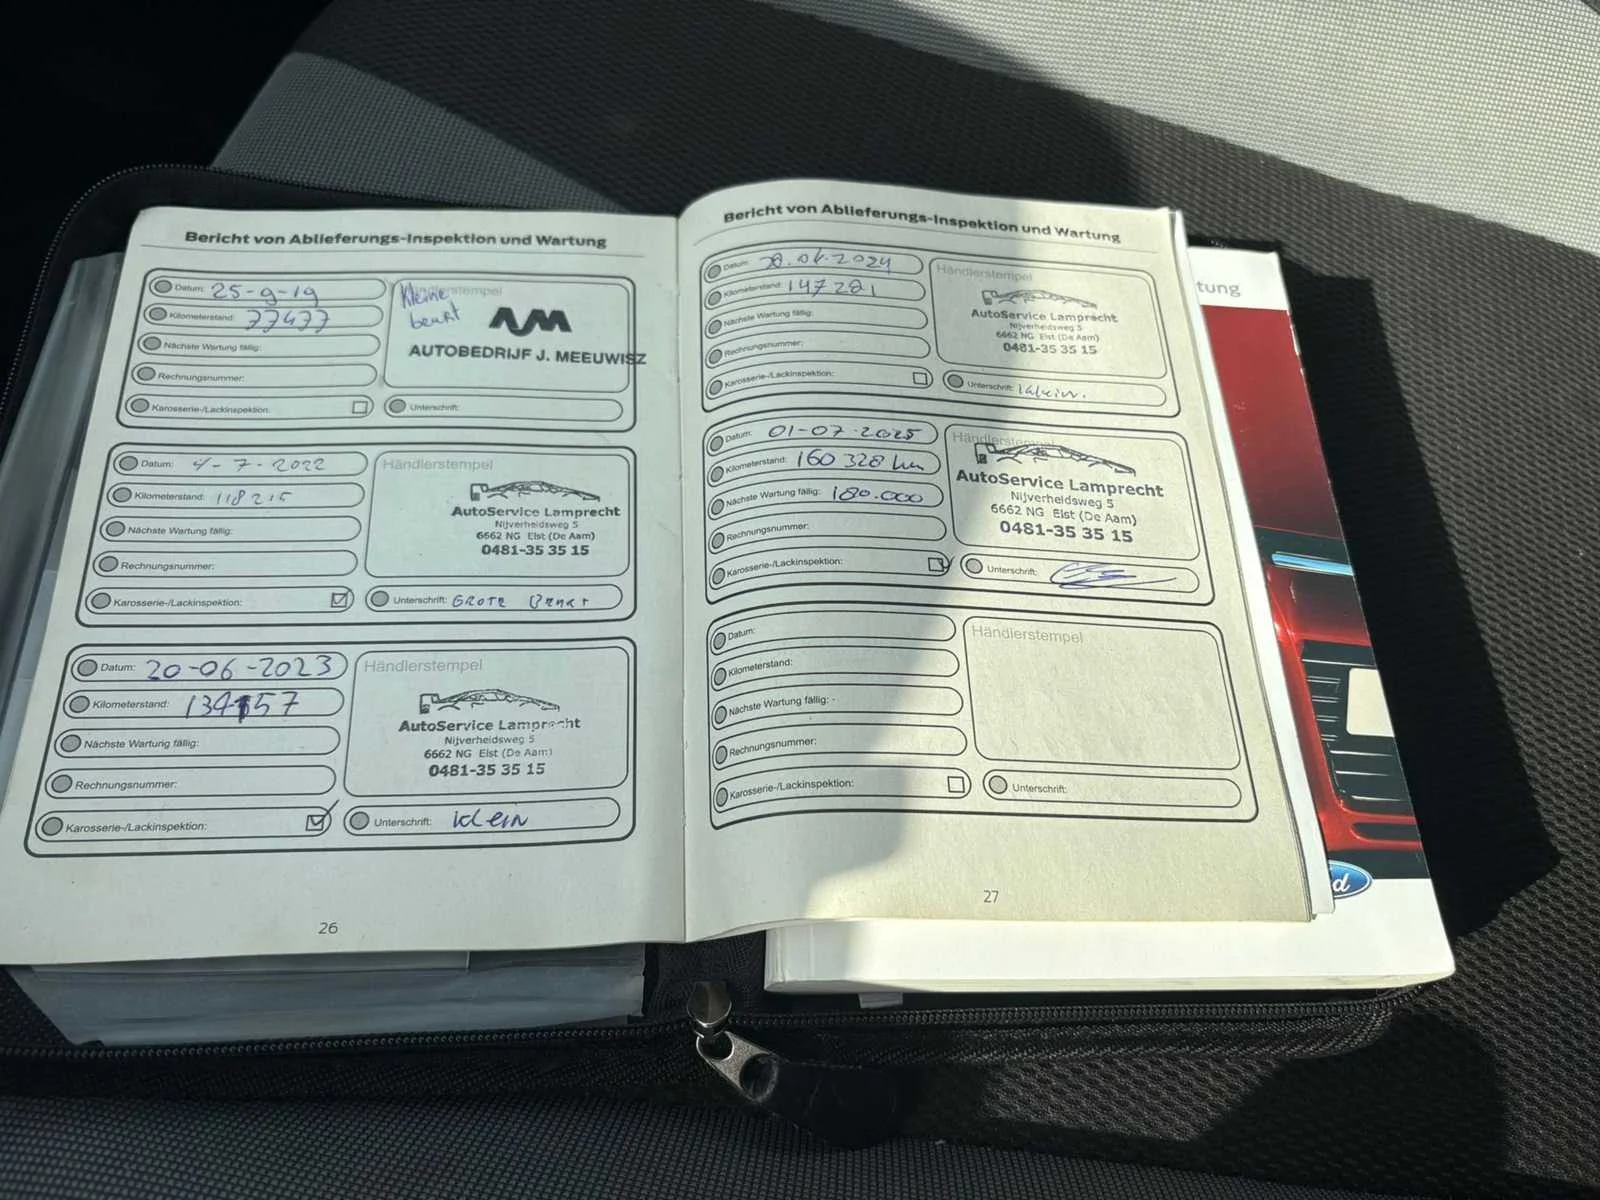 Bericht von Ablieferungs-Inspektion und Wartung
Datum: 25-9-19
Kilometerstand: 77477
Nächste Wartung fällig:
Rechnungsnummer:
Karosserie-/Lackinspektion:
Händlerstempel
Kleine
beurt
AUTOBEDRIJF J. MEEUWISZ
Unterschrift:
Datum: 4-7-2022
Kilometerstand: 118215
Nächste Wartung fällig:
Rechnungsnummer:
Karosserie-/Lackinspektion:
Händlerstempel
AutoService Lamprecht
Nijverheidsweg 5
6662 NG Elst (De Aam)
0481-35 35 15
Unterschrift: GROTE Beurt
Datum: 20-06-2023
Kilometerstand: 134157
Nächste Wartung fällig:
Rechnungsnummer:
Karosserie-/Lackinspektion:
Händlerstempel
AutoService Lamprecht
Nijverheidsweg 5
6662 NG Elst (De Aam)
0481-35 35 15
Unterschrift: Klein
26
Bericht von Ablieferungs-Inspektion und Wartung
Datum: 2024
Kilometerstand: 147281
Nächste Wartung fällig:
Rechnungsnummer:
Karosserie-/Lackinspektion:
Händlerstempel
AutoService Lamprecht
Nijverheidsweg 5
6662 NG Elst (De Aam)
0481-35 35 15
Unterschrift:
Datum: 01-07-2025
Kilometerstand: 160 328 km
Nächste Wartung fällig: 180.000
Rechnungsnummer:
Karosserie-/Lackinspektion:
Händlerstempel
AutoService Lamprecht
Nijverheidsweg 5
6662 NG Elst (De Aam)
0481-35 35 15
Unterschrift:
Datum:
Kilometerstand:
Nächste Wartung fällig:
Rechnungsnummer:
Karosserie-/Lackinspektion:
Händlerstempel
Unterschrift:
27
tung